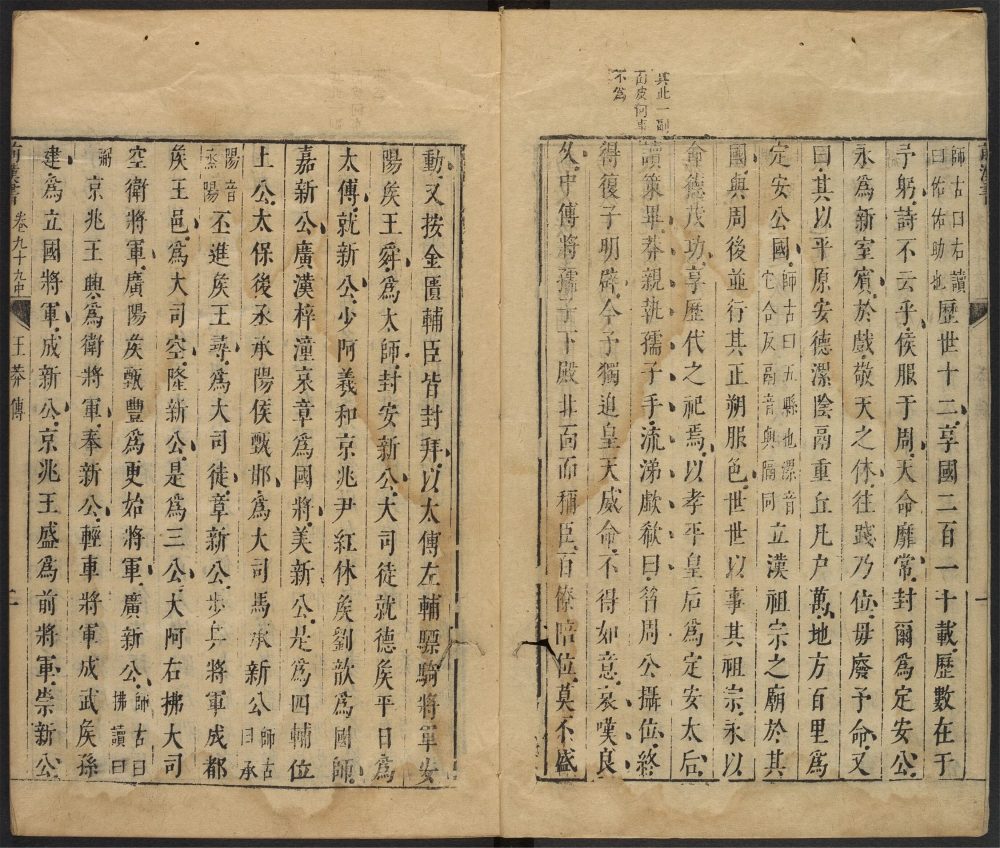 其此一副
面皮何事
不爲
師古曰右讀曰佑佑助也歷世十二享國二百一十載歷數在于
予躬詩不云乎侯服于周天命靡常封爾爲定安公
永爲新室賓於戲敬天之休往踐乃位毋廢予命又
曰其以平原安德漯陰鬲重丘凡戸萬地方百里爲
定安公國師古曰五縣也漯音它合反鬲音與隔同立漢祖宗之廟於其
國與周後並行其正朔服色世世以事其祖宗永以
命德茂功享歷代之祀焉以孝平皇后爲定安太后
讀策畢莽親執孺子手流涕歔欷曰昔周公攝位終
得復子明辟今予獨迫皇天威命不得如意哀嘆良
久中傅將孺子下殿北面而稱臣百僚陪位莫不感
動又按金匱輔臣皆封拜以太傅左輔驃騎將軍安
陽矦王舜爲太師封安新公大司徒就德矦平晏爲
太傅就新公少阿義和京兆尹紅休矦劉歆爲國師
嘉新公廣漢梓潼哀章爲國將美新公是爲四輔位
上公太保後丞承陽侯甄邯爲大司馬承新公師古曰承
陽音烝陽丕進矦王尋爲大司徒章新公步兵將軍成都
矦王邑爲大司空隆新公是爲三公大阿右拂大司
空衛將軍廣陽矦甄豐爲更始將軍廣新公師古曰拂讀曰
弼京兆王興爲衛將軍奉新公輕車將軍成武矦孫
建爲立國將軍成新公京兆王盛爲前將軍崇新公
前漢書 卷九十九中 王莽傳 二